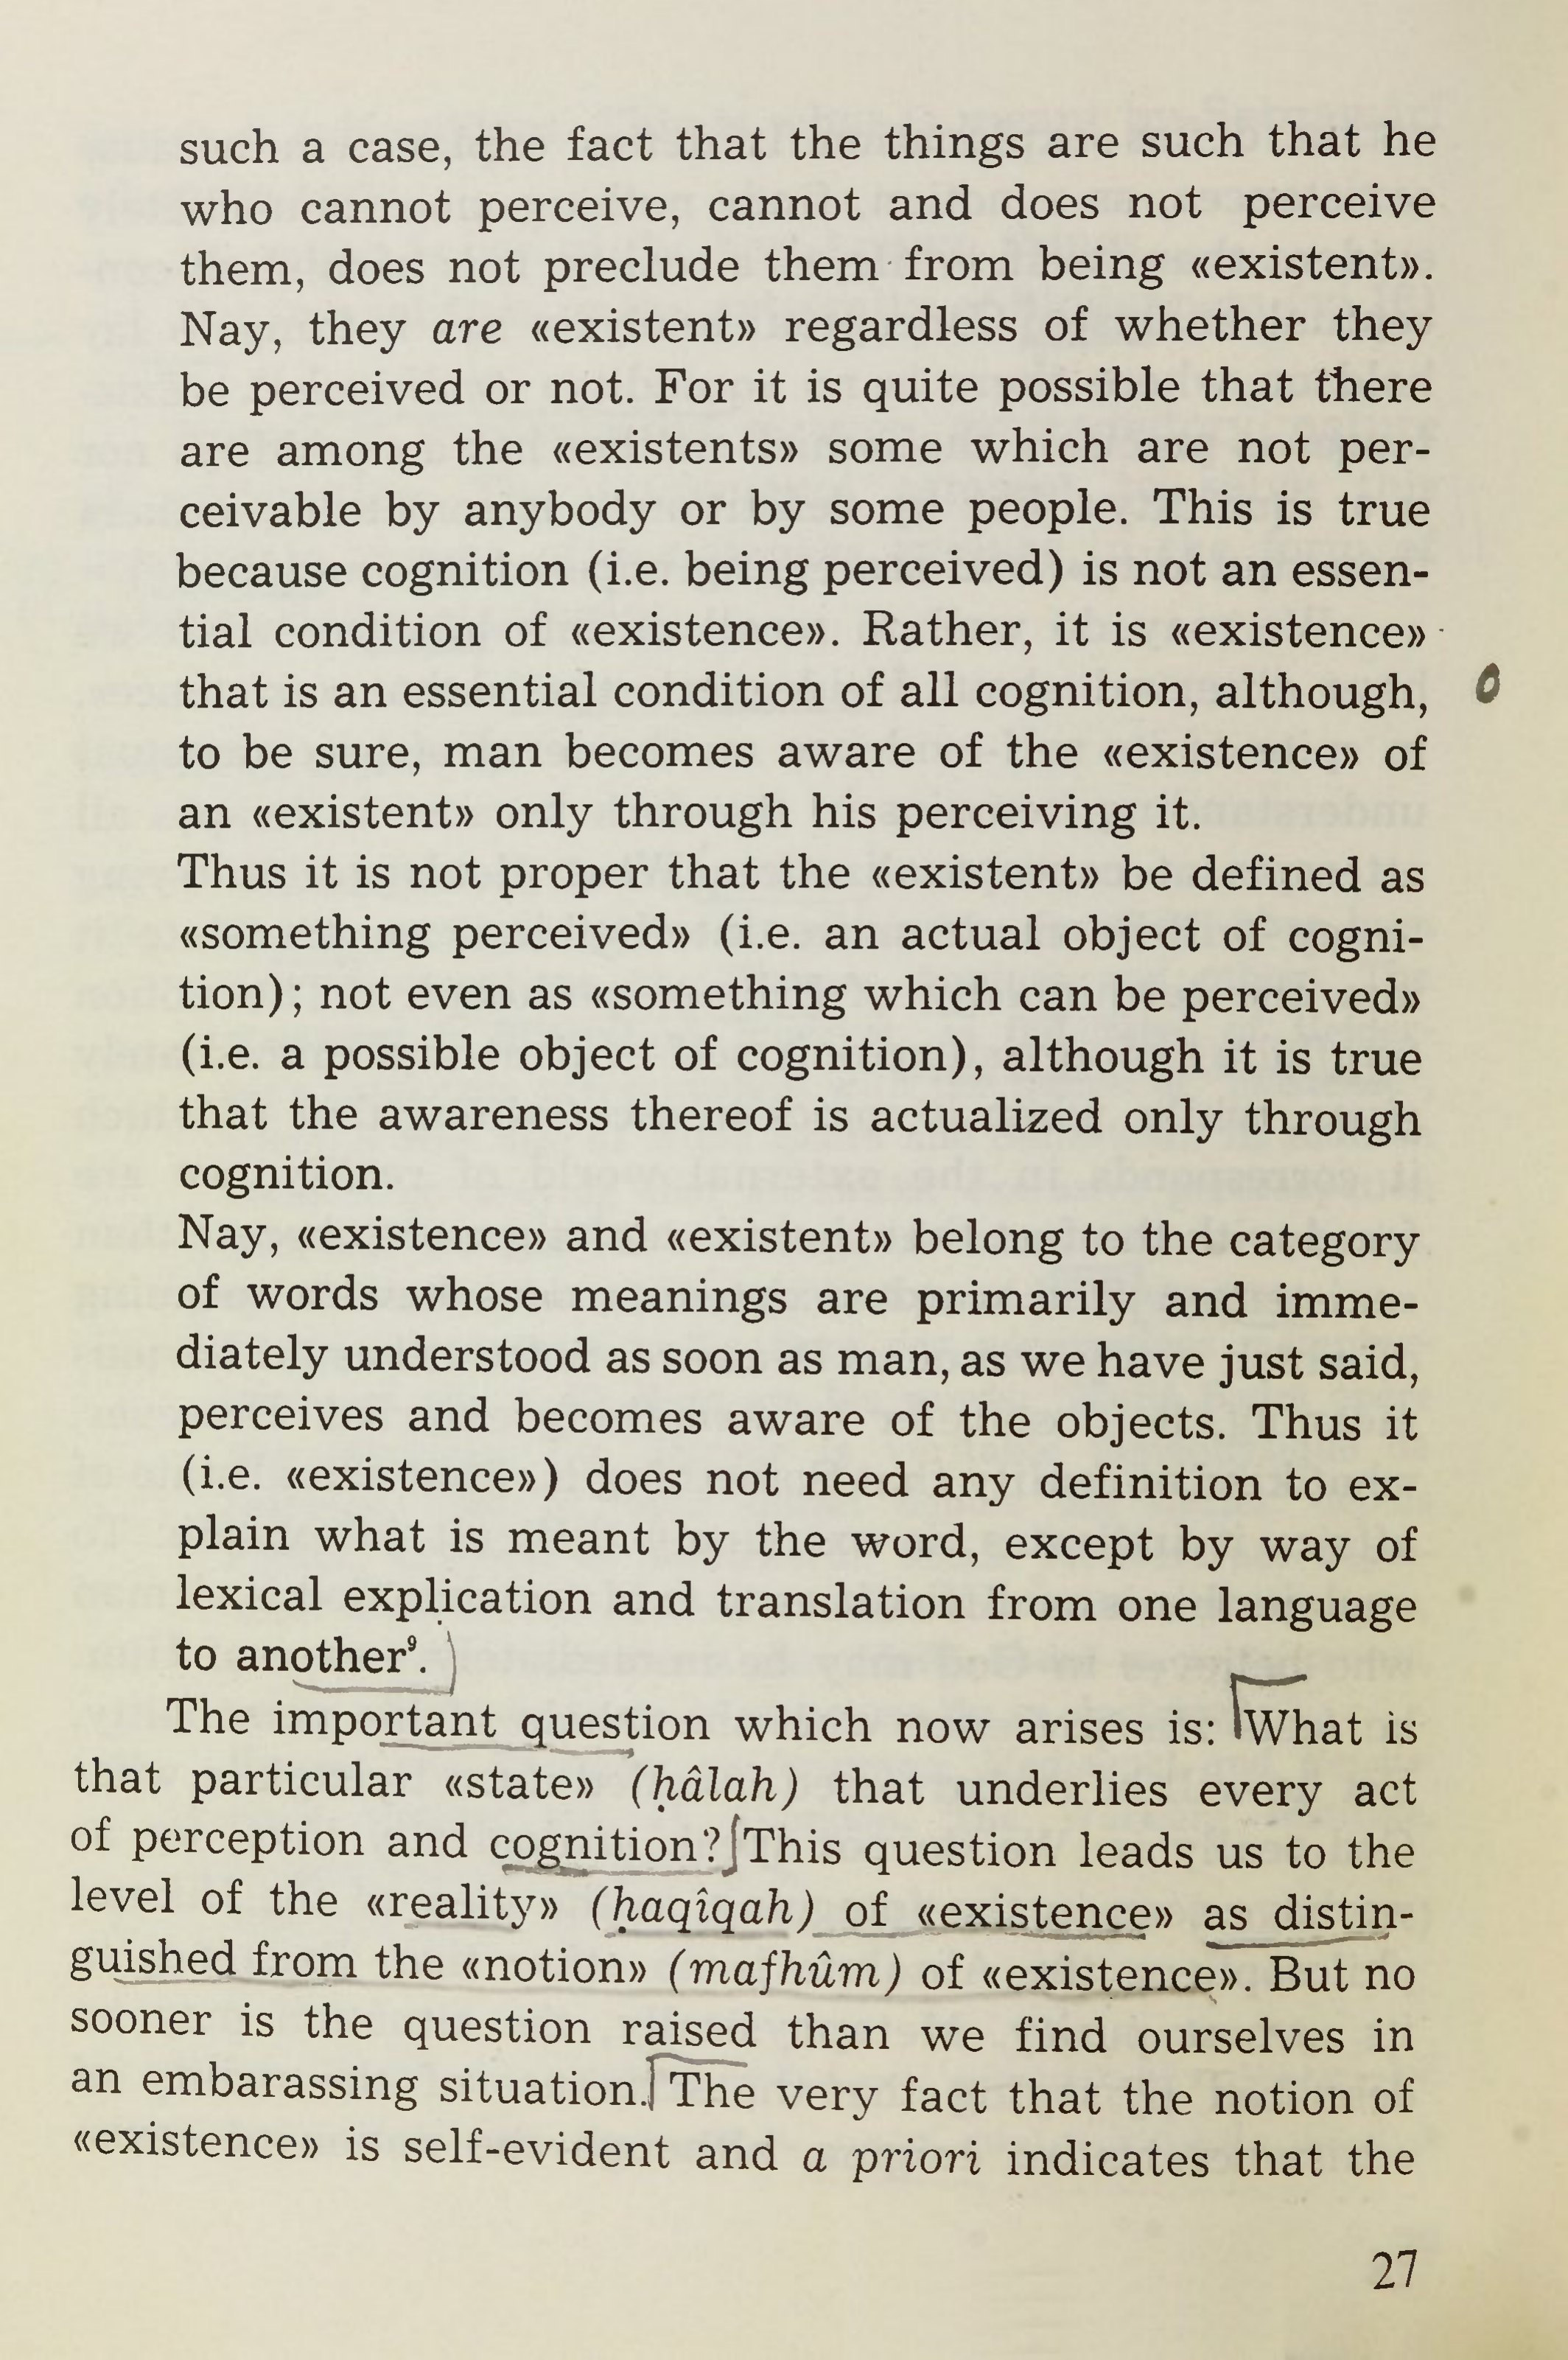 such a case, the fact that the things are such that he
who cannot perceive, cannot and does not perceive
them, does not preclude them from being «existent».
Nay, they are «existent» regardless of whether they
be perceived or not. For it is quite possible that there
are among the «existents» some which are not per-
ceivable by anybody or by some people. This is true
because cognition (i.e. being perceived) is not an essen-
tial condition of «existence». Rather, it is «existence»
that is an essential condition of all cognition, although,
to be sure, man becomes aware of the «existence» of
an «existent» only through his perceiving it.
Thus it is not proper that the «existent» be defined as
«something perceived» (i.e. an actual object of cogni-
tion); not even as «something which can be perceived»
(i.e. a possible object of cognition), although it is true
that the awareness thereof is actualized only through
cognition.
Nay, «existence» and «existent» belong to the category
of words whose meanings are primarily and imme-
diately understood as soon as man, as we have just said,
perceives and becomes aware of the objects. Thus it
(i.e. «existence») does not need any definition to ex-
plain what is meant by the word, except by way of
lexical explication and translation from one language
to another⁹.
The important question which now arises is: What is
that particular «state» (ḥâlah) that underlies every act
of perception and cognition? This question leads us to the
level of the «reality» (ḥaqîqah) of «existence» as distin-
guished from the «notion» (mafhûm) of «existence». But no
sooner is the question raised than we find ourselves in
an embarassing situation. The very fact that the notion of
«existence» is self-evident and a priori indicates that the
27